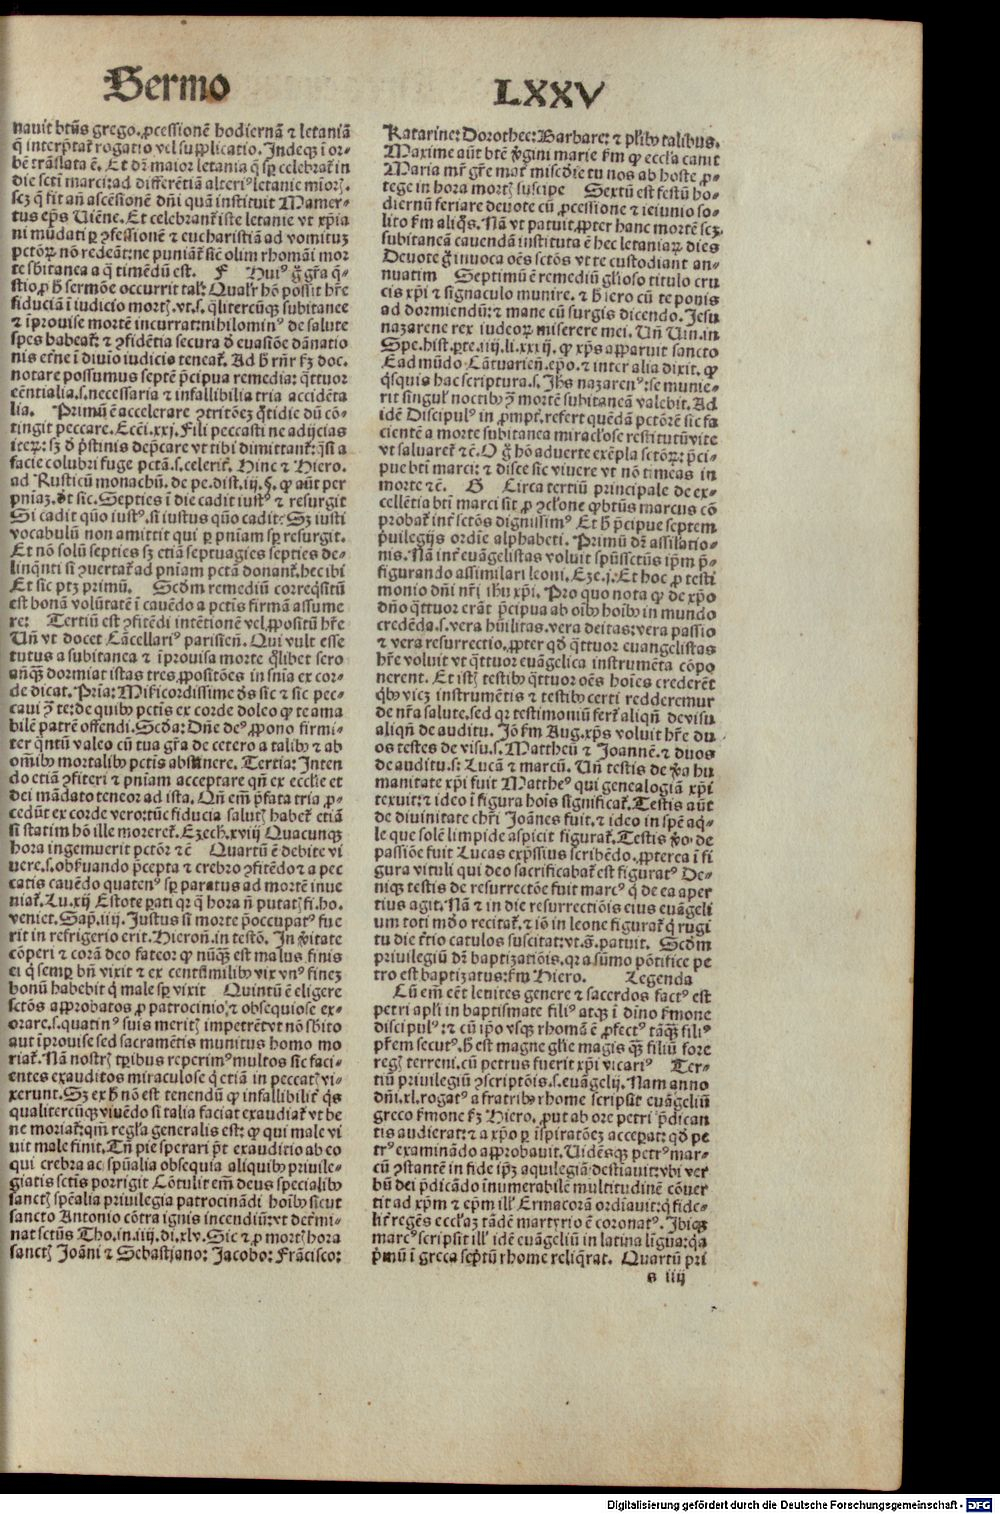 Sermo LXXV
nauit btũs grego. ꝓcessionē hodiernā ⁊ letaniā
q̄ interp̄tat̄ rogatio vel supplicatio. Indeqꝫ ī or-
bē trāslata ē. Et dr̄ maior letania q̄ sꝑ celebrat̄ in
die scti marci: ad differētiā alteriꝰ letanie mīorꝭ.
scꝫ q̄ fit añ ascēsionē dñi quā instituit Mamer-
tus ep̄s Uiēne. Et celebrant̄ iste letanie vt xp̄ia
ni mūdati ꝑ ꝯfessionē ⁊ eucharistiā ad vomituꝫ
pctōꝝ nō redeāt: ne puniant̄ sic̄ olim rhomāi mor
te sbitanea a q̄ timēdū est. F Huiꝰ ḡ gr̄a q̄-
stio ꝓ ħ sermōe occurrit tal̄. Qualr̄ hō possit hr̄e
fiduciā ī iudicio mortꝭ. vt.s. q̄litercūqꝫ subitanee
⁊ īprouise mortē incurrat: nihilominꝰ de salute
spes habeat̄: ⁊ ꝯfidētia secura ꝺ euasiōe dānatio
nis etn̄e ī diuīo iudicio teneat̄. Ad ħ rn̄r ẜꝫ doc.
notare possumus septē p̄cipua remedia: q̄ttuor
eēntialia.s. necessaria ⁊ infallibilia tria accidēta
lia. Primū ē accelerare ꝯtritōeꝫ q̄tidie dū cō-
tingit peccare. Ecci.xxj. Fili peccasti ne adijcias
iteꝝ: sꝫ ꝺ p̄stinis dep̄care vt tibi dimittant̄: q̄si a
facie colubri fuge pctā.s. celerit̄. Hinc ⁊ Hiero.
ad Rusticū monachū. de pe.dist.iij.§. ꝙ aūt per
pniaꝫ. vt sic. Septies ī die cadit iustꝰ ⁊ resurgit
Si cadit quō iustꝰ. si iustus quō cadit: Sꝫ iusti
vocabulū non amittit qui ꝑ pniam sꝑ resurgit.
Et nō solū septies sꝫ etiā septuagies septies de-
linq̄nti si ꝯuertat̄ ad pniam pctā donant̄. hec ibi
Et sic ptꝫ primū. Scd̄m remediū correq̄sitū
est bonā volūtatē ī cauēdo a pctis firmā assume
re: Tertiū est ꝯfitēdi intētionē vel ꝓpositū hr̄e
Uñ vt docet Cācellariꝰ parisieñ. Qui vult esse
tutus a subitanea ⁊ īprouisa morte q̄libet sero
añqꝫ dormiat istas tres ꝓpositōes in sn̄ia ex cor-
de dicat. Pria: Mis̄icordissime dn̄s sic ⁊ sic pec-
caui ꝯ̄ te: de quibꝰ pctis ex corde doleo ꝙ te ama
bilē patrē offendi. Scda: Dn̄e deꝰ ꝓpono firmi-
ter q̄ntū valeo cū tua gr̄a de cetero a talibꝰ ⁊ ab
om̄ibꝰ mortalibꝰ pctis abstinere. Tertia: Inten
do etiā ꝯfiteri ⁊ pniam acceptare qñ ex ecclie et
dei mādato teneor ad ista. Qñ em̄ p̄fata tria ꝓ-
cedūt ex corde vero: tūc fiducia salutꝭ habet̄ etiā
si statim hō ille moreret̄. Ezech.xviij Quacunqꝫ
hora ingemuerit pctōr ⁊c̄ Quartū ē debite vi
uere.s. obẜuando p̄cepta ⁊ crebro ꝯfitēdo ⁊ a pec
catis cauēdo quatenꝰ sꝑ paratus ad mortē inue
niat̄. Lu.xij Estote ꝑati qꝛ q̄ hora ñ putatꝭ fi.ho.
veniet. Sap.iiij. Justus si morte p̄occupatꝰ fue
rit in refrigerio erit. Hieroñ. in testō. In v̄itate
cōperi ⁊ corā deo fateor ꝙ nūqꝫ est malus finis
ei q̄ semꝑ bn̄ vixit ⁊ ex centūmilibꝰ vix vnꝰ fineꝫ
bonū habebit q̄ male sꝑ vixit Quintū ē eligere
sctōs approbatos ꝓ patrocinio ⁊ obsequiose ex-
orare.s. quatinꝰ suis meritꝭ impetrēt vt nō sbito
aut īprouise sed sacramētis munitus homo mo
riat̄. Nā nostrꝭ tꝑibus reperimꝰ multos sic̄ faci-
entes exauditos miraculose q̄ etiā in peccatꝭ vi-
xerunt. Sꝫ ex ħ nō est tenendū ꝙ infallibilit̄ q̄s
qualitercūqꝫ viuēdo si talia faciat exaudiat̄ vt be
ne moriat̄: qm̄ regl̄a generalis est: ꝙ qui male vi
uit male finit. Tn̄ pie sperari p̄t exauditio ab eo
qui crebra ac spūalia obsequia aliquibꝰ priuile-
giatis sctis porrigit Cōtulit em̄ deus specialibꝰ
sanctꝭ spēalia priuilegia patrocināndi hoībꝰ sicut
sancto Antonio cōtra ignis incendiū: vt det̄mi-
nat sctūs Tho.in.iiij.di.xlv. Sic ⁊ ꝓ mortꝭ hora
sanctꝭ Joāni ⁊ Sebastiano: Jacobo: Frācisco:
Katarine: Dorothee: Barbare: ⁊ pl̄ibꝰ talibus.
Maxime aūt btē v̄gini marie ẜm ꝙ eccl̄a canit
Maria mr̄ gr̄e mat̄ mis̄cdie tu nos ab hoste ꝓ-
tege in hora mortꝭ suscipe Sextū est festū ho-
diernū feriare deuote cū ꝓcessione ⁊ ieiunio so-
lito ẜm aliq̄s. Nā vt patuit ꝓpter hanc mortē scꝫ
subitaneā cauendā instituta ē hec letaniaꝝ dies
Deuote ḡ inuoca oēs sctōs vt te custodiant an-
nuatim Septimū ē remediū gl̄ioso titulo cru
cis xp̄i ⁊ signaculo munire. ⁊ ħ iero cū te ponis
ad dormiendū: ⁊ mane cū surgis dicendo. Jesu
nazarene rex iudeoꝝ miserere mei. Uñ Uin. in
Spe.hist.ꝑte.iiij.li.xxxij. ꝙ xp̄s apparuit sancto
Eadmūdo Cātuarieñ. ep̄o. ⁊ inter alia dixit. ꝙ
q̄squis hac scriptura.s. Jhs̄ nazarenꝰ: se munie-
rit singul̄ noctibꝰ ꝯ̄ mortē subitaneā valebit. Ad
idē Discipulꝰ in ꝓmpt̄. refert quēdā pctōrē sic fa
cientē a morte subitanea miracl̄ose restitutū vite
vt saluaret̄ ⁊c̄. O ḡ hō aduerte exēpla sctōꝝ: p̄ci-
pue bti marci: ⁊ disce sic viuere vt nō timeas in
morte ⁊c̄. G Circa tertiū principale de ex-
cellētia bti marci sit ꝓ ꝯcl̄one ꝙ btūs marcus cō
probat̄ int̄ sctōs dignissimꝰ Et ħ p̄cipue septem
p̄uilegijs ordīe alphabeti. Primū dr̄ assil̄atio-
nis. Nā int̄ euāgelistas voluit spūssctūs ip̄m p̄-
figurando assimilari leoni. Eze.j. Et hoc ꝓ testi
monio dñi nr̄i ihu xp̄i. Pro quo nota ꝙ de xp̄o
dño q̄ttuor erāt p̄cipua ab oībꝰ hoībꝰ in mundo
credēda.s. vera hūilitas. vera deitas: vera passio
⁊ vera resurrectio. ꝓpter qd̄ q̄ttuor euangelistas
hr̄e voluit vt q̄ttuor euāgelica instrumēta cōpo
nerent. Et istꝭ testibꝰ q̄ttuor oēs hoīes crederēt
q̄bꝰ viceꝫ instrumētis ⁊ testibꝰ certi redderemur
de nr̄a salute. sed qꝛ testimoniū fert̄ aliqñ de visu
aliqñ de auditu. Jō ẜm Aug. xp̄s voluit hr̄e du
os testes de visu.s. Mattheū ⁊ Joannē. ⁊ duos
de auditu.s: Lucā ⁊ marcū. Uñ testis de v̄a hu
manitate xp̄i fuit Mattheꝰ qui genealogiā xp̄i
texuit: ⁊ ideo ī figura hoīs significat̄. Testis aūt
de diuinitate chr̄i Joānes fuit. ⁊ ideo in spē aq̄-
le que solē limpide aspicit figurat̄. Testis v̄o de
passiōe fuit Lucas exp̄ssius scribēdo. ꝓpterea ī fi
gura vituli qui deo sacrificabat̄ est figuratꝰ De-
niqꝫ testis de resurrectōe fuit marcꝰ q̄ de ea aper
tius agit. Nā ⁊ in die resurrectiōis eius euāgeli
um toti mūdo recitat̄. ⁊ iō in leone figurat̄ q̄ rugi
tu die t̄tio catulos suscitat: vt.ā. patuit. Scd̄m
priuilegiū dr̄ baptizatiōis. qꝛ a sūmo pōtifice pe
tro est baptizatus: ẜm Hiero. Legenda
Cū em̄ eēt leuites genere ⁊ sacerdos factꝰ est
petri apl̄i in baptismate filiꝰ atqꝫ ī diuino ẜmone
discipulꝰ: ⁊ cū ip̄o vsqꝫ rhomā ē ꝓfectꝰ tāqꝫ filiꝰ
pr̄em secutꝰ. ħ est magne gl̄ie magis qꝫ filiū fore
regꝭ terreni. cū petrus fuerit xp̄i vicariꝰ Ter-
tiū priuilegiū ꝯscriptōis.s. euāgelij. Nam anno
dñi.xl. rogatꝰ a fratribꝰ rhome scripsit euāgeliū
greco ẜmone ẜꝫ Hiero. prout ab ore petri p̄dican
tis audierat: ⁊ a xp̄o ꝑ īspiratōeꝫ acceperat: qd̄ pe
trꝰ examinādo approbauit. Uidensqꝫ petrꝰ mar-
cū ꝯstantē in fide ip̄ꝫ aquilegiā destiauit: vbi ver
bū dei p̄dicādo īnumerabilē multitudinē cōuer
tit ad xp̄m ⁊ ep̄m ill̄ Ermacorā ordiauit: q̄ fide-
lit̄ regēs eccl̄aꝫ tādē martyrio ē coronatꝰ. Ibiqꝫ
marcꝰ scripsit ill̄ idē euāgeliū in latina līgua: q̄a
p̄mū ī greca sc̄ptū rhome reliq̄rat. Quartū pri
s iiij
Digitalisierung gefördert durch die Deutsche Forschungsgemeinschaft - DFG